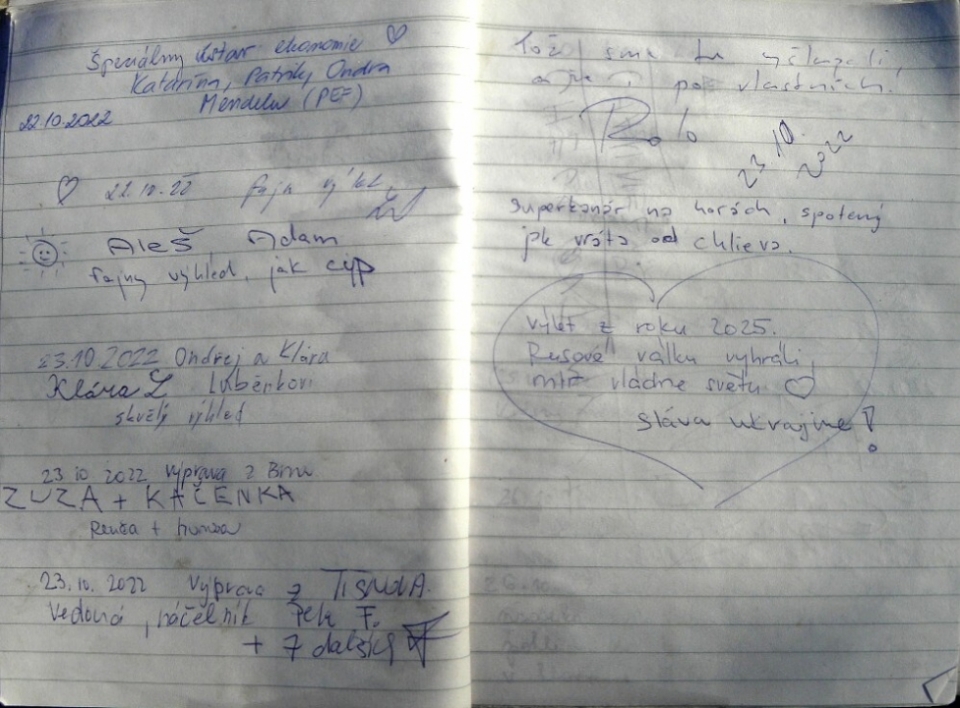 Špeciálny ústav ekonomie ♡
Katarína, Patrik, Ondra
Mendelu (PEF)
22.10.2022
♡ 22.10.22 fajn
Aleš Adam
fajny výhled, jak cyp
23.10.2022 Ondrej a Klára
Klára L
skvělý výhled
23 10 2022 výprava z Brna
ZUZA + KAČENKA
23.10.2022 Výprava z TIŠNOVA.
náčelník F.
+ 7 dalších
Tož sme tu vyšlapali,
po vlastních.
23 10 2022
Superkanár na horách, spotený
jak vráta od chlieva.
výlet z roku 2025.
Rusové válku vyhráli,
mír vládne světu ♡
Sláva Ukrajine!